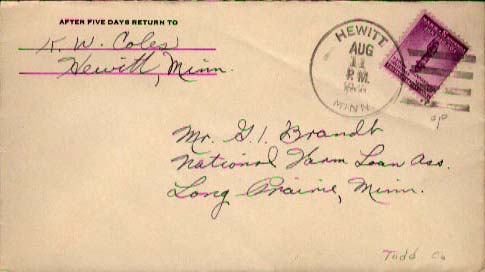 AFTER FIVE DAYS RETURN TO
K. W. Coles
Hewitt, Minn.
HEWITT
AUG
11
P.M.
MINN.
Mr. G. I. Brandt
National Farm Loan Ass.
Long Prairie, Minn.
Todd Co